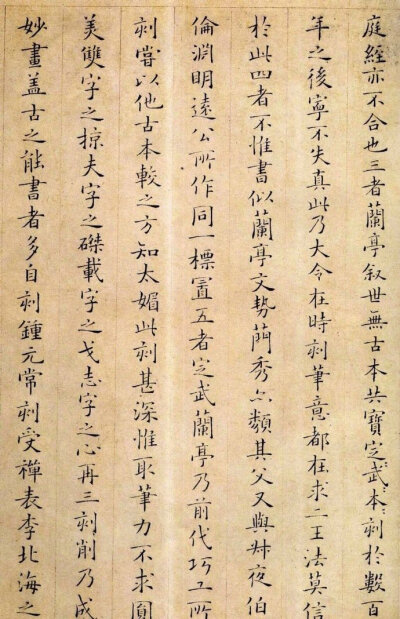 庭經亦不合也三者蘭亭叙世無古本共寶定武本刻於數百
年之後寧不失真此乃大令在時刻筆意都在求二王法莫信
於此四者不惟書似蘭亭文勢蕳秀亦類其父又與叔夜伯
倫淵明遠公所作同一標置五者定武蘭亭乃前代巧工所
刻嘗以他古本較之方知太媚此刻甚深惟取筆力不求圓
美雙字之掠夫字之磔載字之戈志字之心再三刻削乃成
妙畫盖古之能書者多自刻鍾元常刻受禪表李北海之